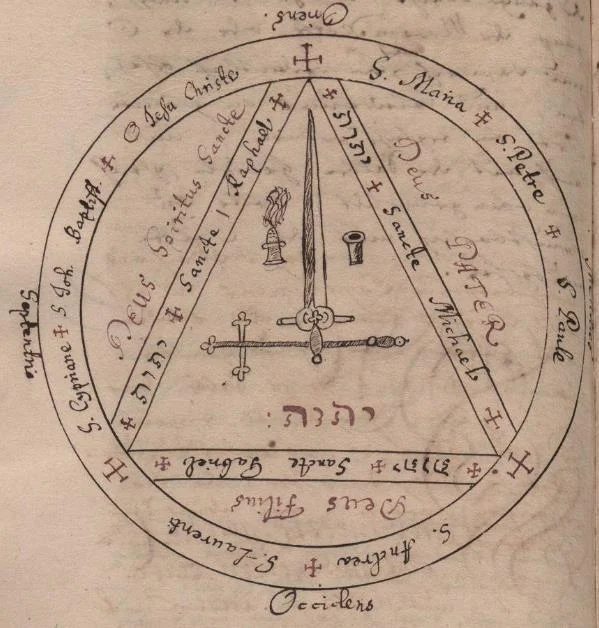 Oriens.
✠
O Jesu Christe
S. Maria ✠ S. Petre ✠ S Paule
✠ S. Andrea ✠ S. Laurenti ✠
S. Cypriane ✠ S Joh. Baptist. ✠
Septentrio
Occidens
Deus Spiritus Sancte
Deus PATER
Deus Filius
✠ יהוה ✠ Sancte Raphael ✠
✠ יהוה ✠ Sancte Michael ✠
✠ יהוה ✠ Sancte Gabriel ✠
יהוה :